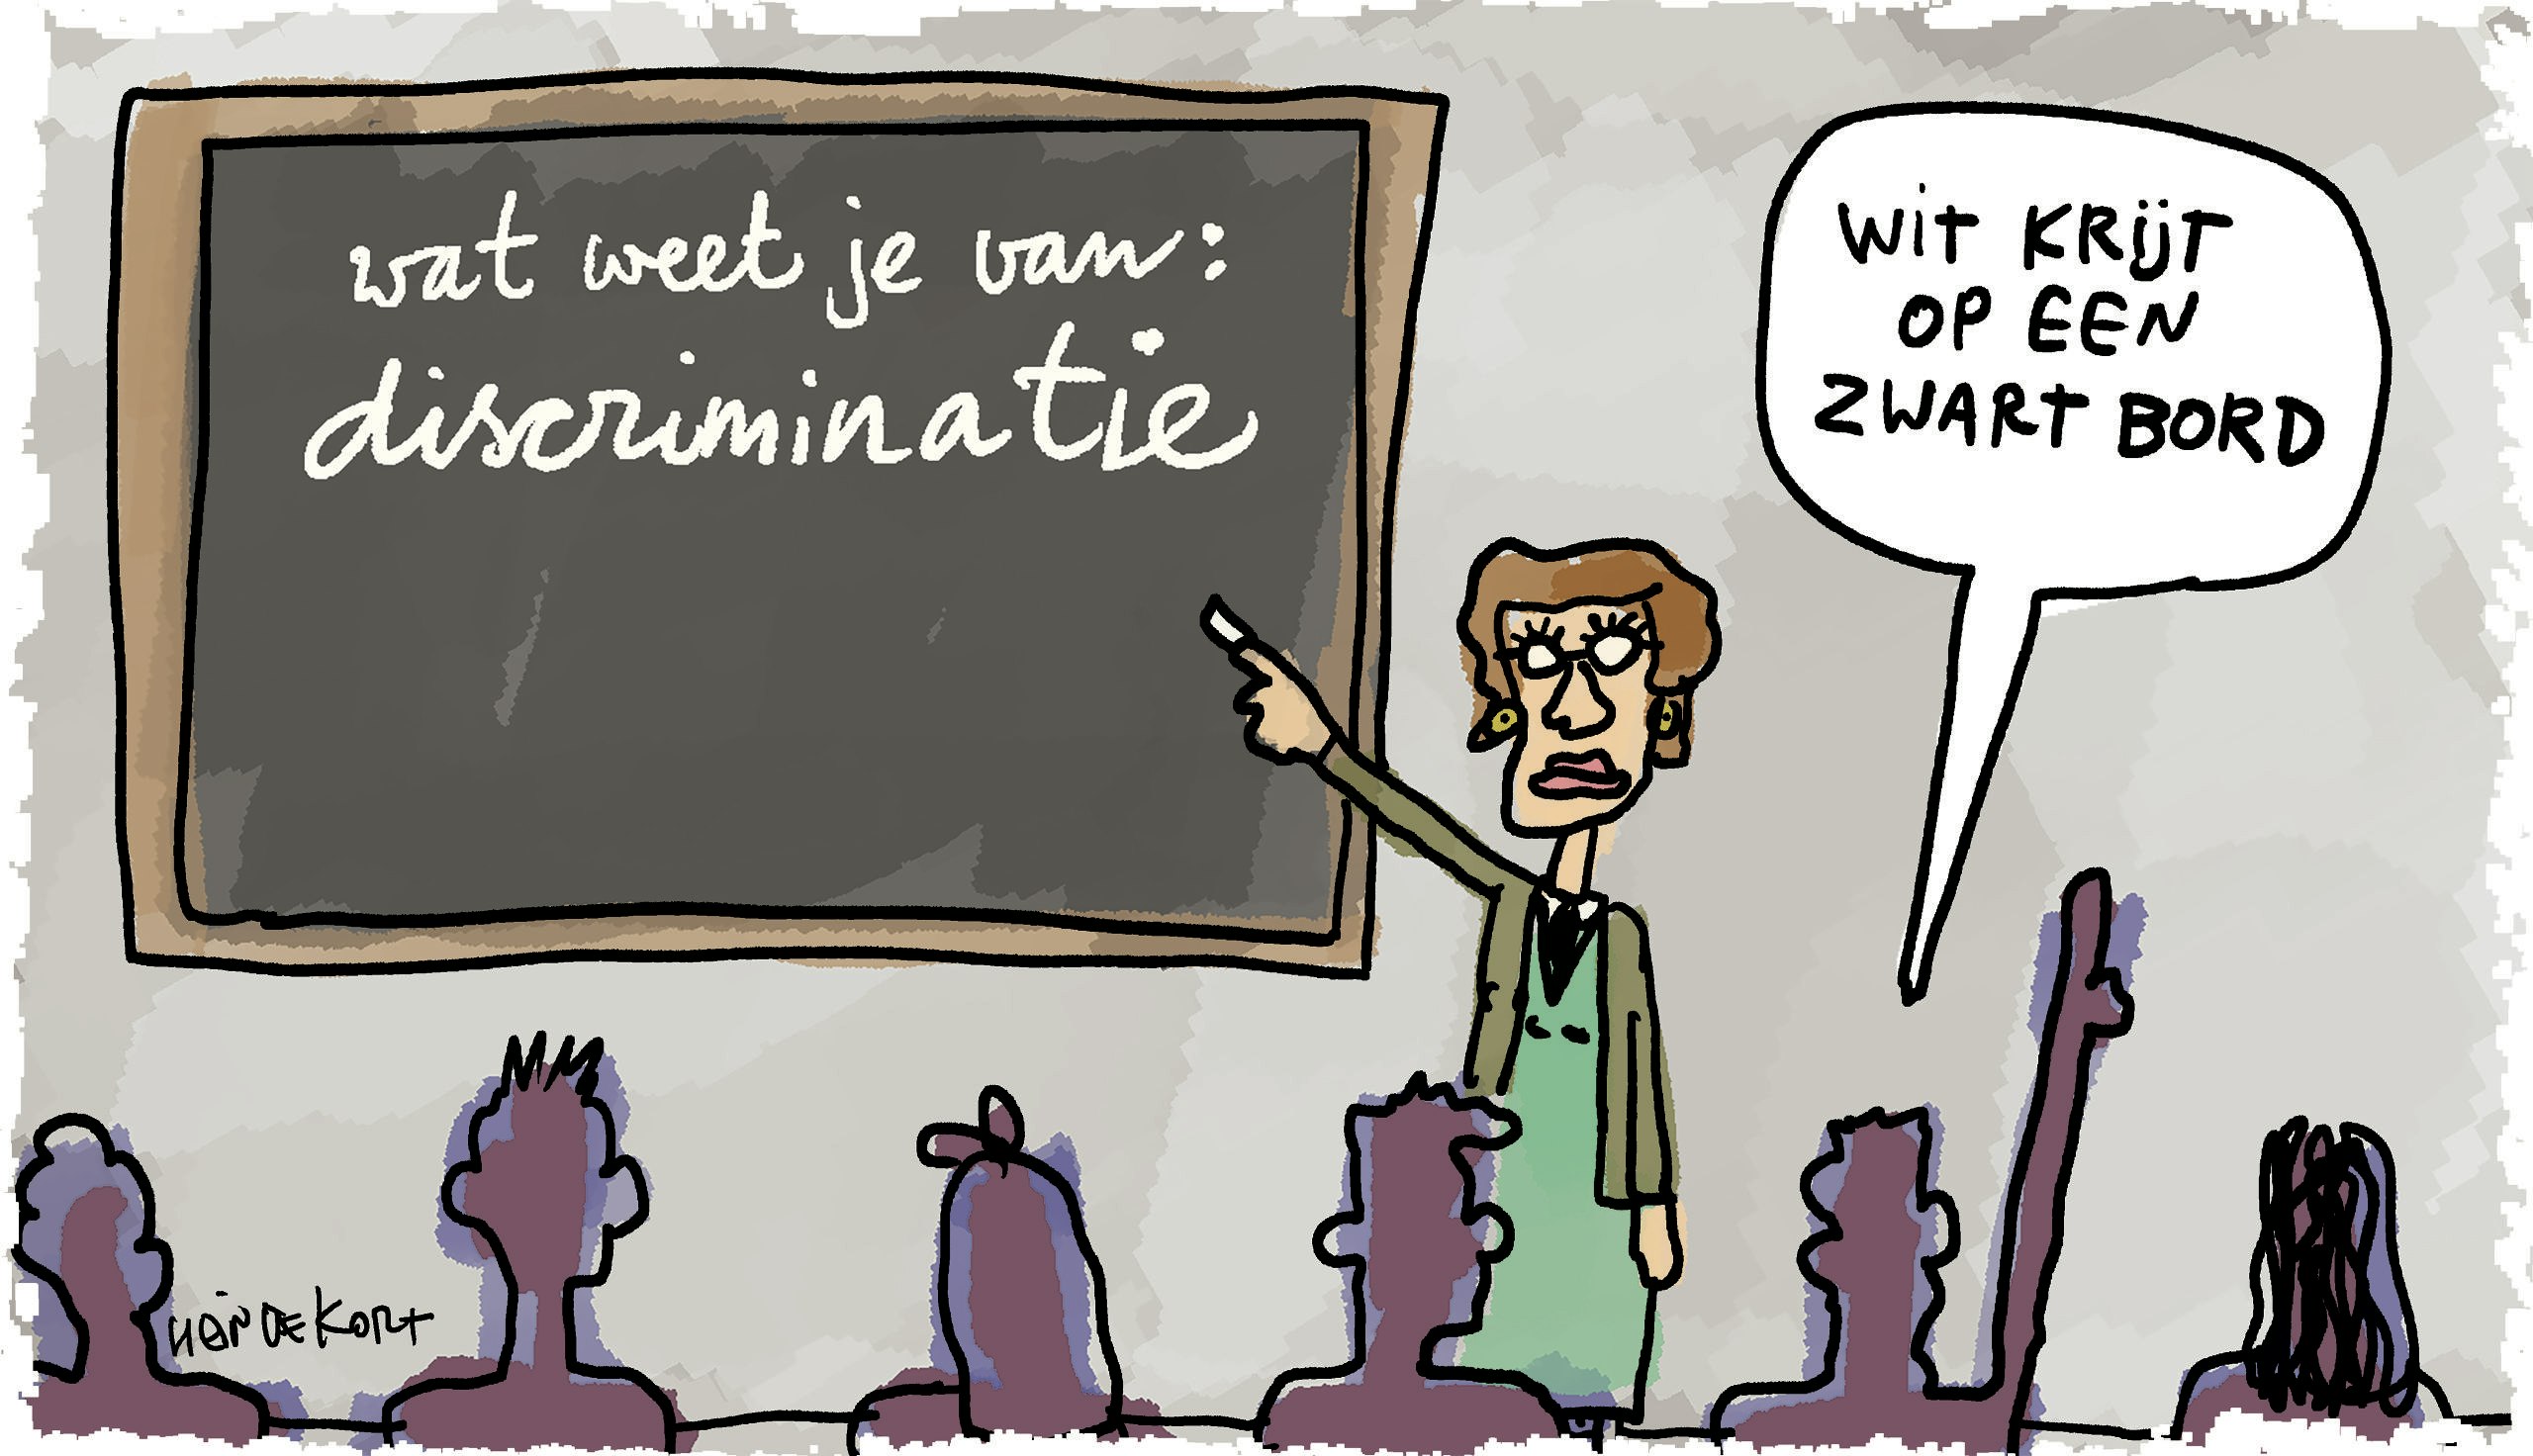 wat weet je van:
discriminatie
WIT KRIJT
OP EEN
ZWART BORD
HEIN DE KORT